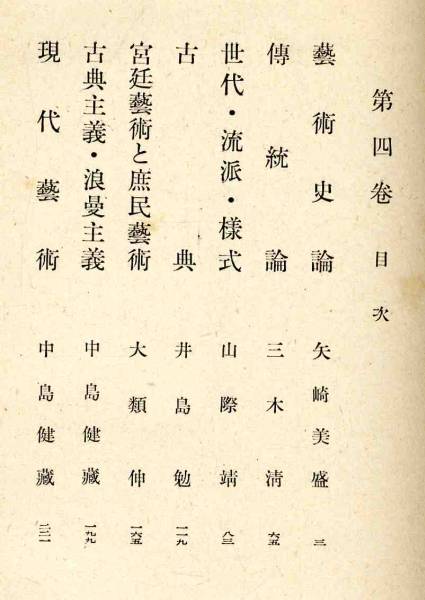 第四卷 目次
藝術史論 矢崎美盛 三
傳統論 三木淸 六五
世代・流派・樣式 山際靖 八三
古典 井島勉 一一九
宮廷藝術と庶民藝術 大類伸 一六五
古典主義・浪曼主義 中島健藏 一九九
現代藝術 中島健藏 二二一